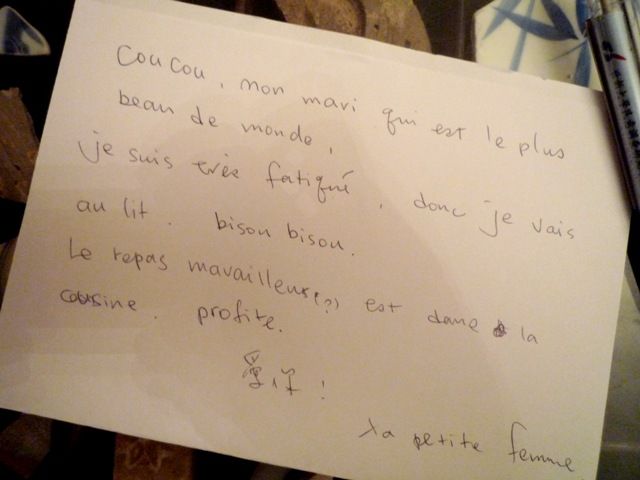 Coucou, mon mari qui est le plus
beau de monde,
je suis très fatiqué, donc je vais
au lit. bison bison.
Le repas mavailleuse(?) est dane la
cousine. profite.
爱你!
ta petite femme